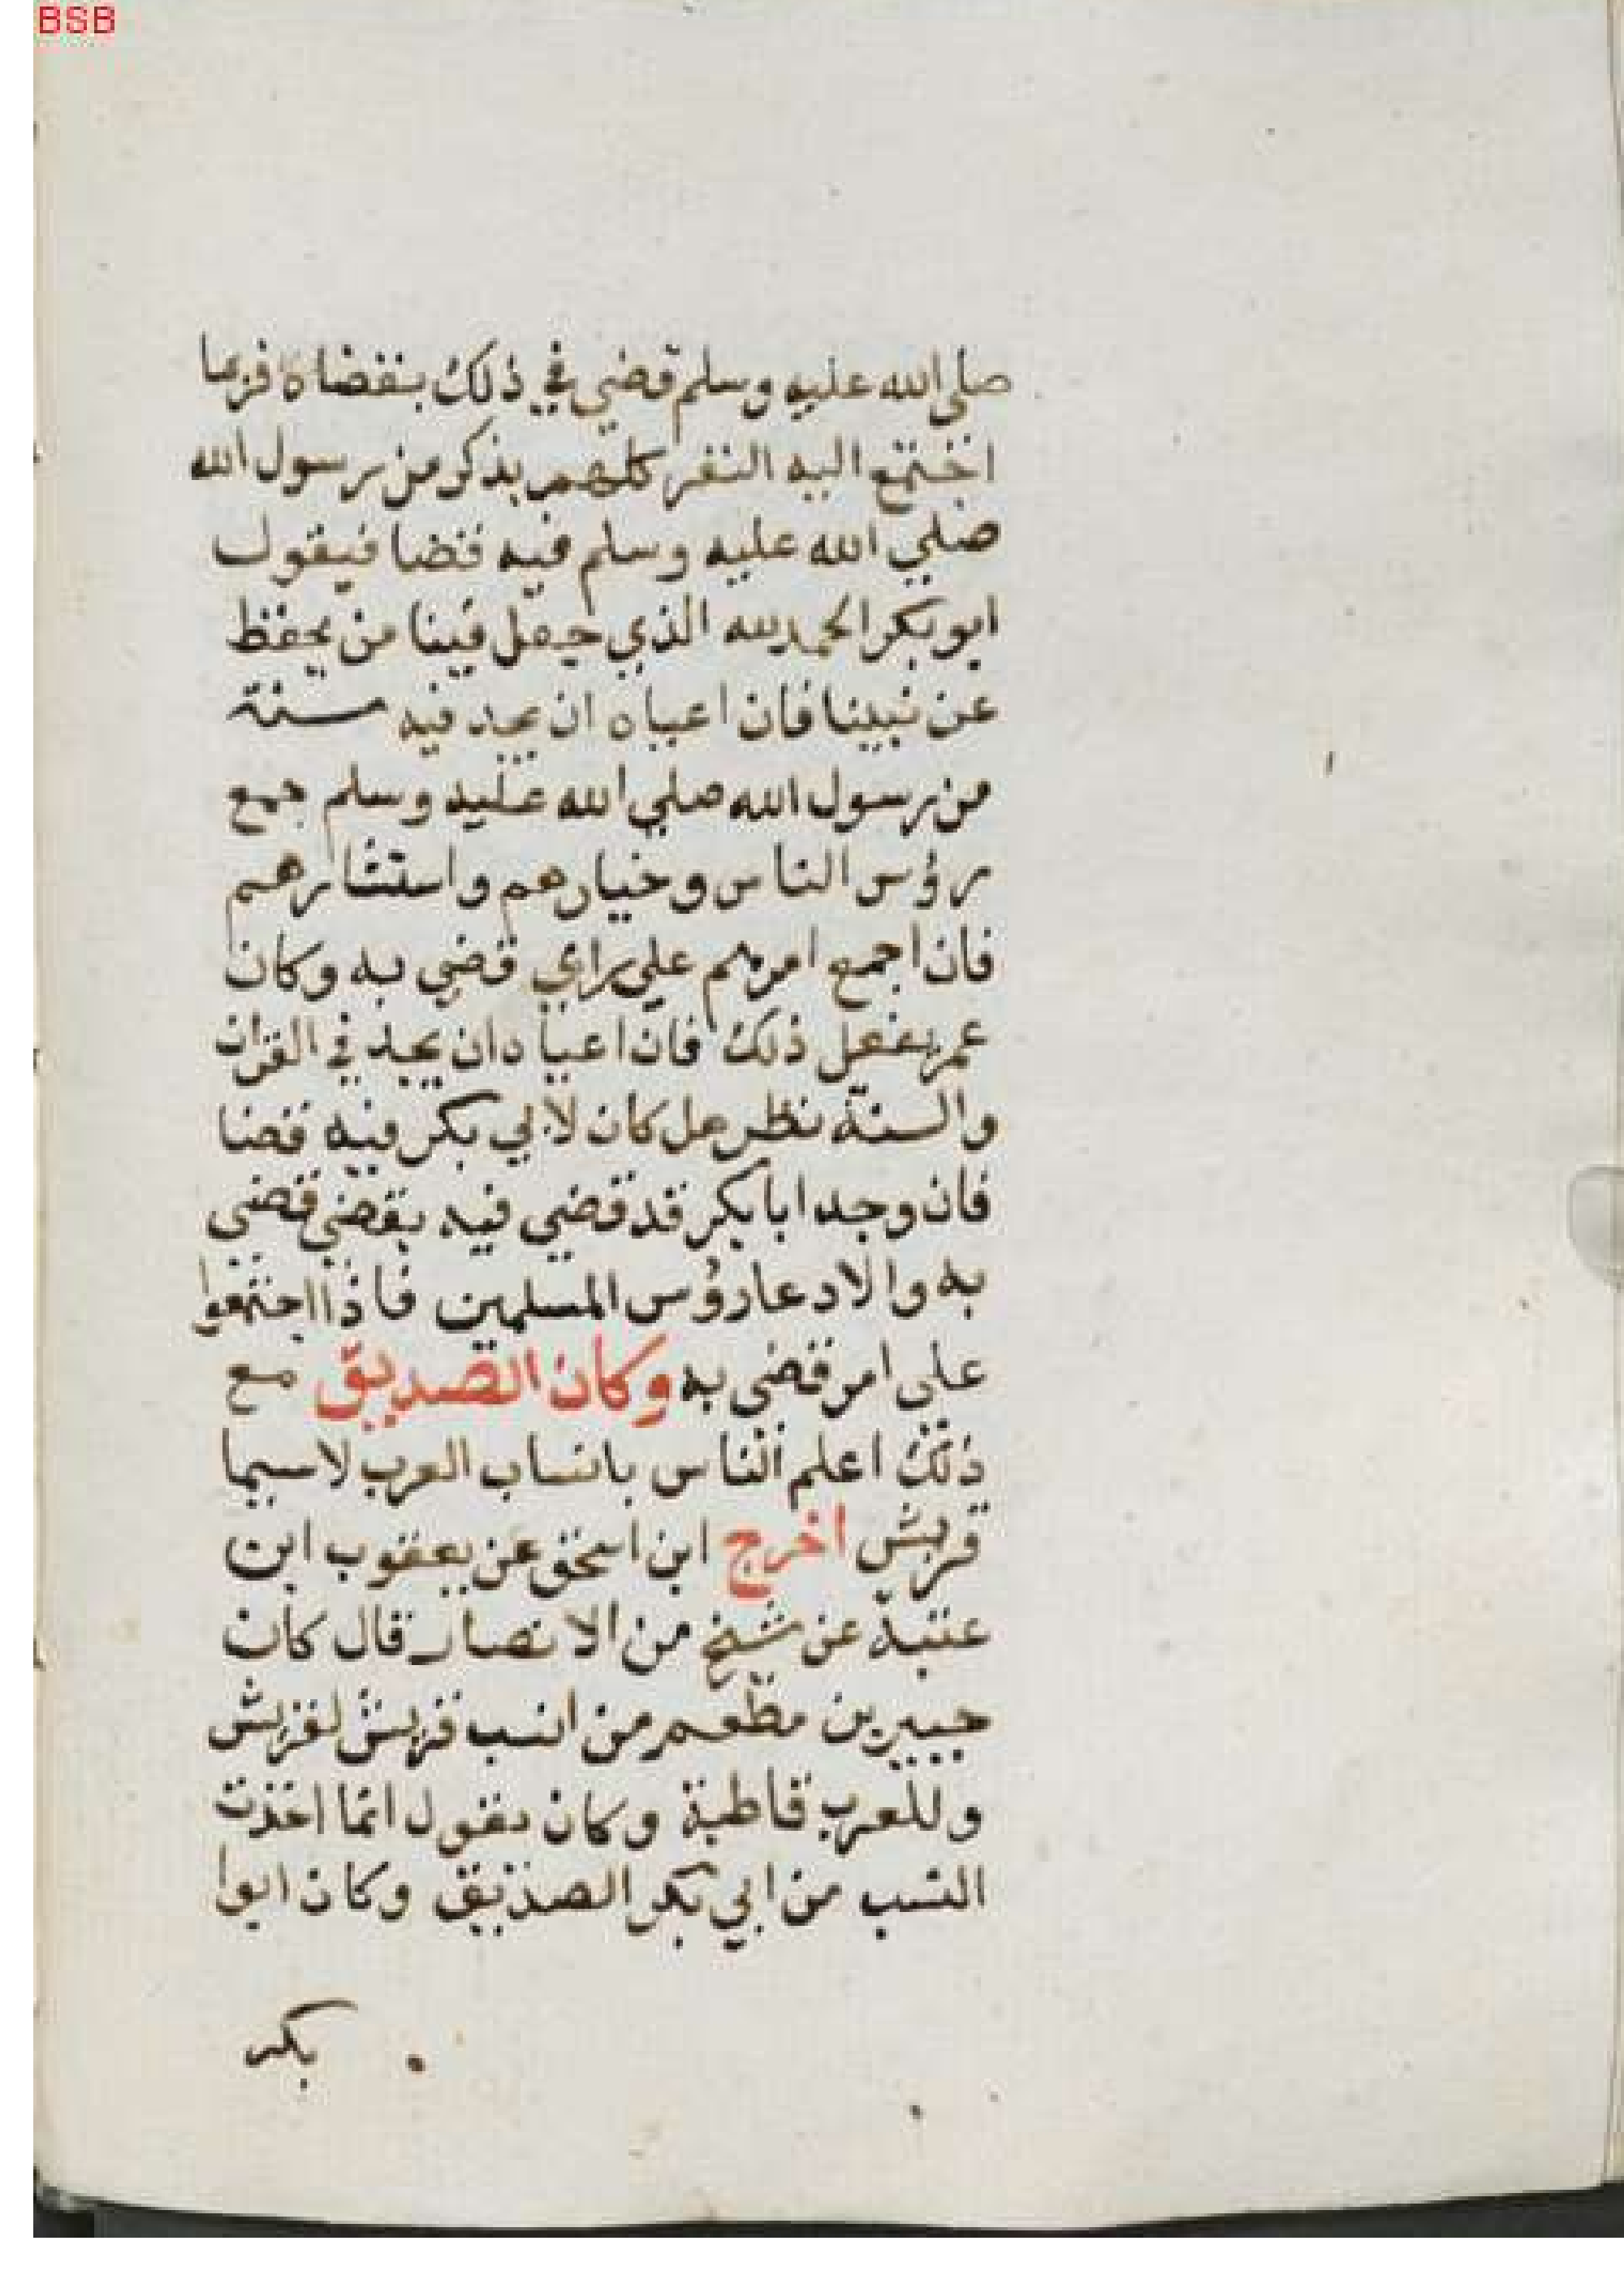 BSB
صلى الله عليه وسلم قضي في ذلك بقضاه فربما
اجتمع اليه النفر كلهم يذكر من رسول الله
صلي الله عليه وسلم فيه قضا فيقول
ابو بكر الحمد لله الذي جعل فينا من يحفظ
عن نبينا فان اعياه ان يجد فيه سنة
من رسول الله صلي الله عليه وسلم جمع
رؤس الناس وخيارهم واستشارهم
فان اجمع امرهم علي راي قضي به وكان
عمر يفعل ذلك فان اعياه ان يجد في القران
والسنة نظر هل كان لابي بكر فيه قضا
فان وجد ابا بكر قد قضي فيه بقضي قضى
به والا دعا رؤس المسلمين فاذا اجتمعوا
على امر قضى به وكان الصديق مع
ذلك اعلم الناس بانساب العرب لاسيما
قريش اخرج ابن اسحق عن يعقوب ابن
عتبة عن شيخ من الانصار قال كان
جبير بن مطعم من انسب قريش لقريش
وللعرب قاطبة وكان يقول انما اخذت
النسب من ابي بكر الصديق وكان ابوا
بكر